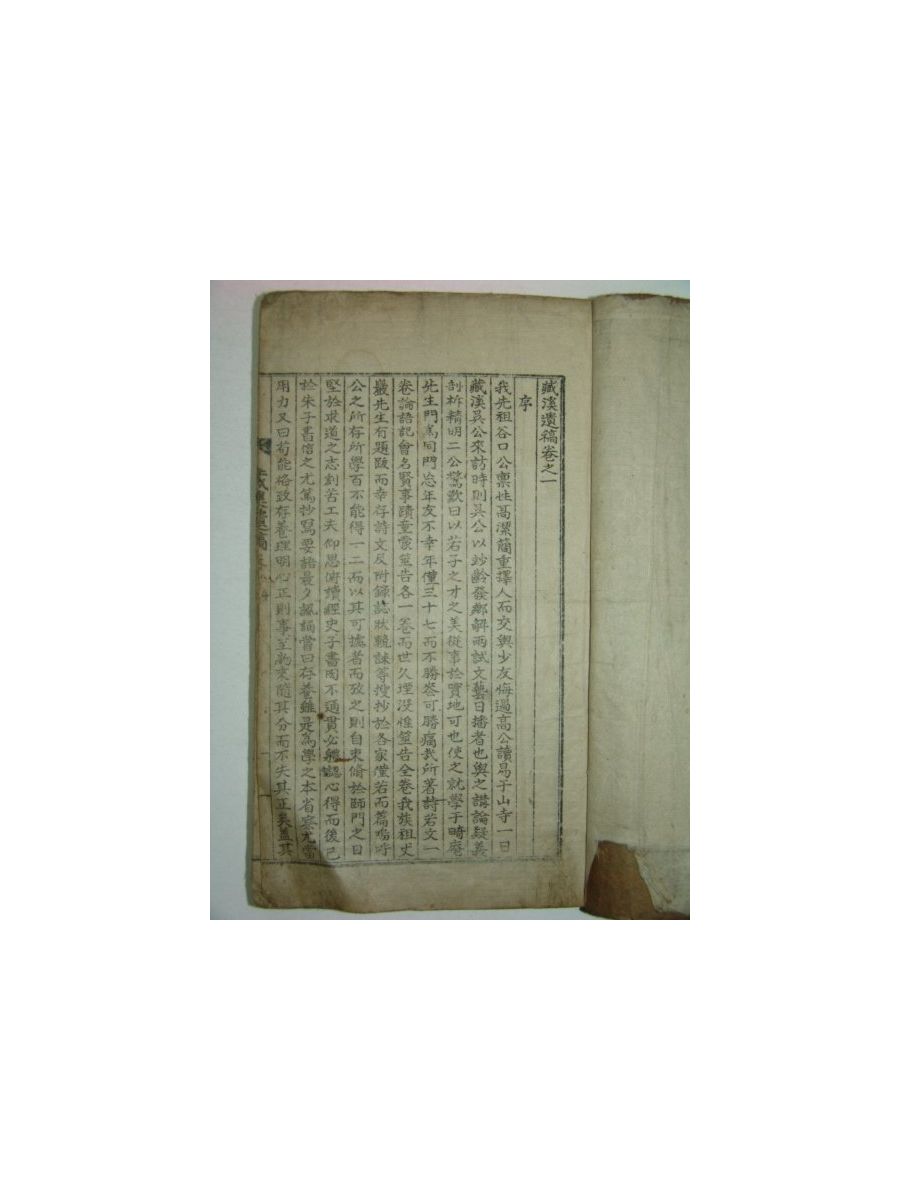 藏溪遺稿卷之一
序
我先祖谷口公稟性高潔簡重擇人而交與少友悔過高公讀易于山寺一日
藏溪吳公來訪時則吳公以妙齡發鄕解兩試文藝日播者也與之講論疑義
剖析精明二公驚歎曰以若子之才之美從事於實地可也使之就學于畸庵
先生門爲同門忘年友不幸年僅三十七而不勝喪可勝痛哉所著詩若文一
卷論語記曾名賢事蹟童蒙筮告各一卷而世久堙沒惟筮告全卷我族祖丈
巖先生有題跋而幸存詩文及附錄誌狀輓誄等搜抄於各家僅若而篇嗚呼
公之所存所學百不能得一二而以其可據者而攷之則自束脩於師門之日
堅於求道之志刻苦工夫仰思俯讀經史子書罔不通貫必體認心得而後已
於朱子書信之尤篤抄寫要語晨夕諷誦嘗曰存養雖是爲學之本省察尤當
用力又曰苟能格致存養理明心正則事至物來隨其分而不失其正矣盖其